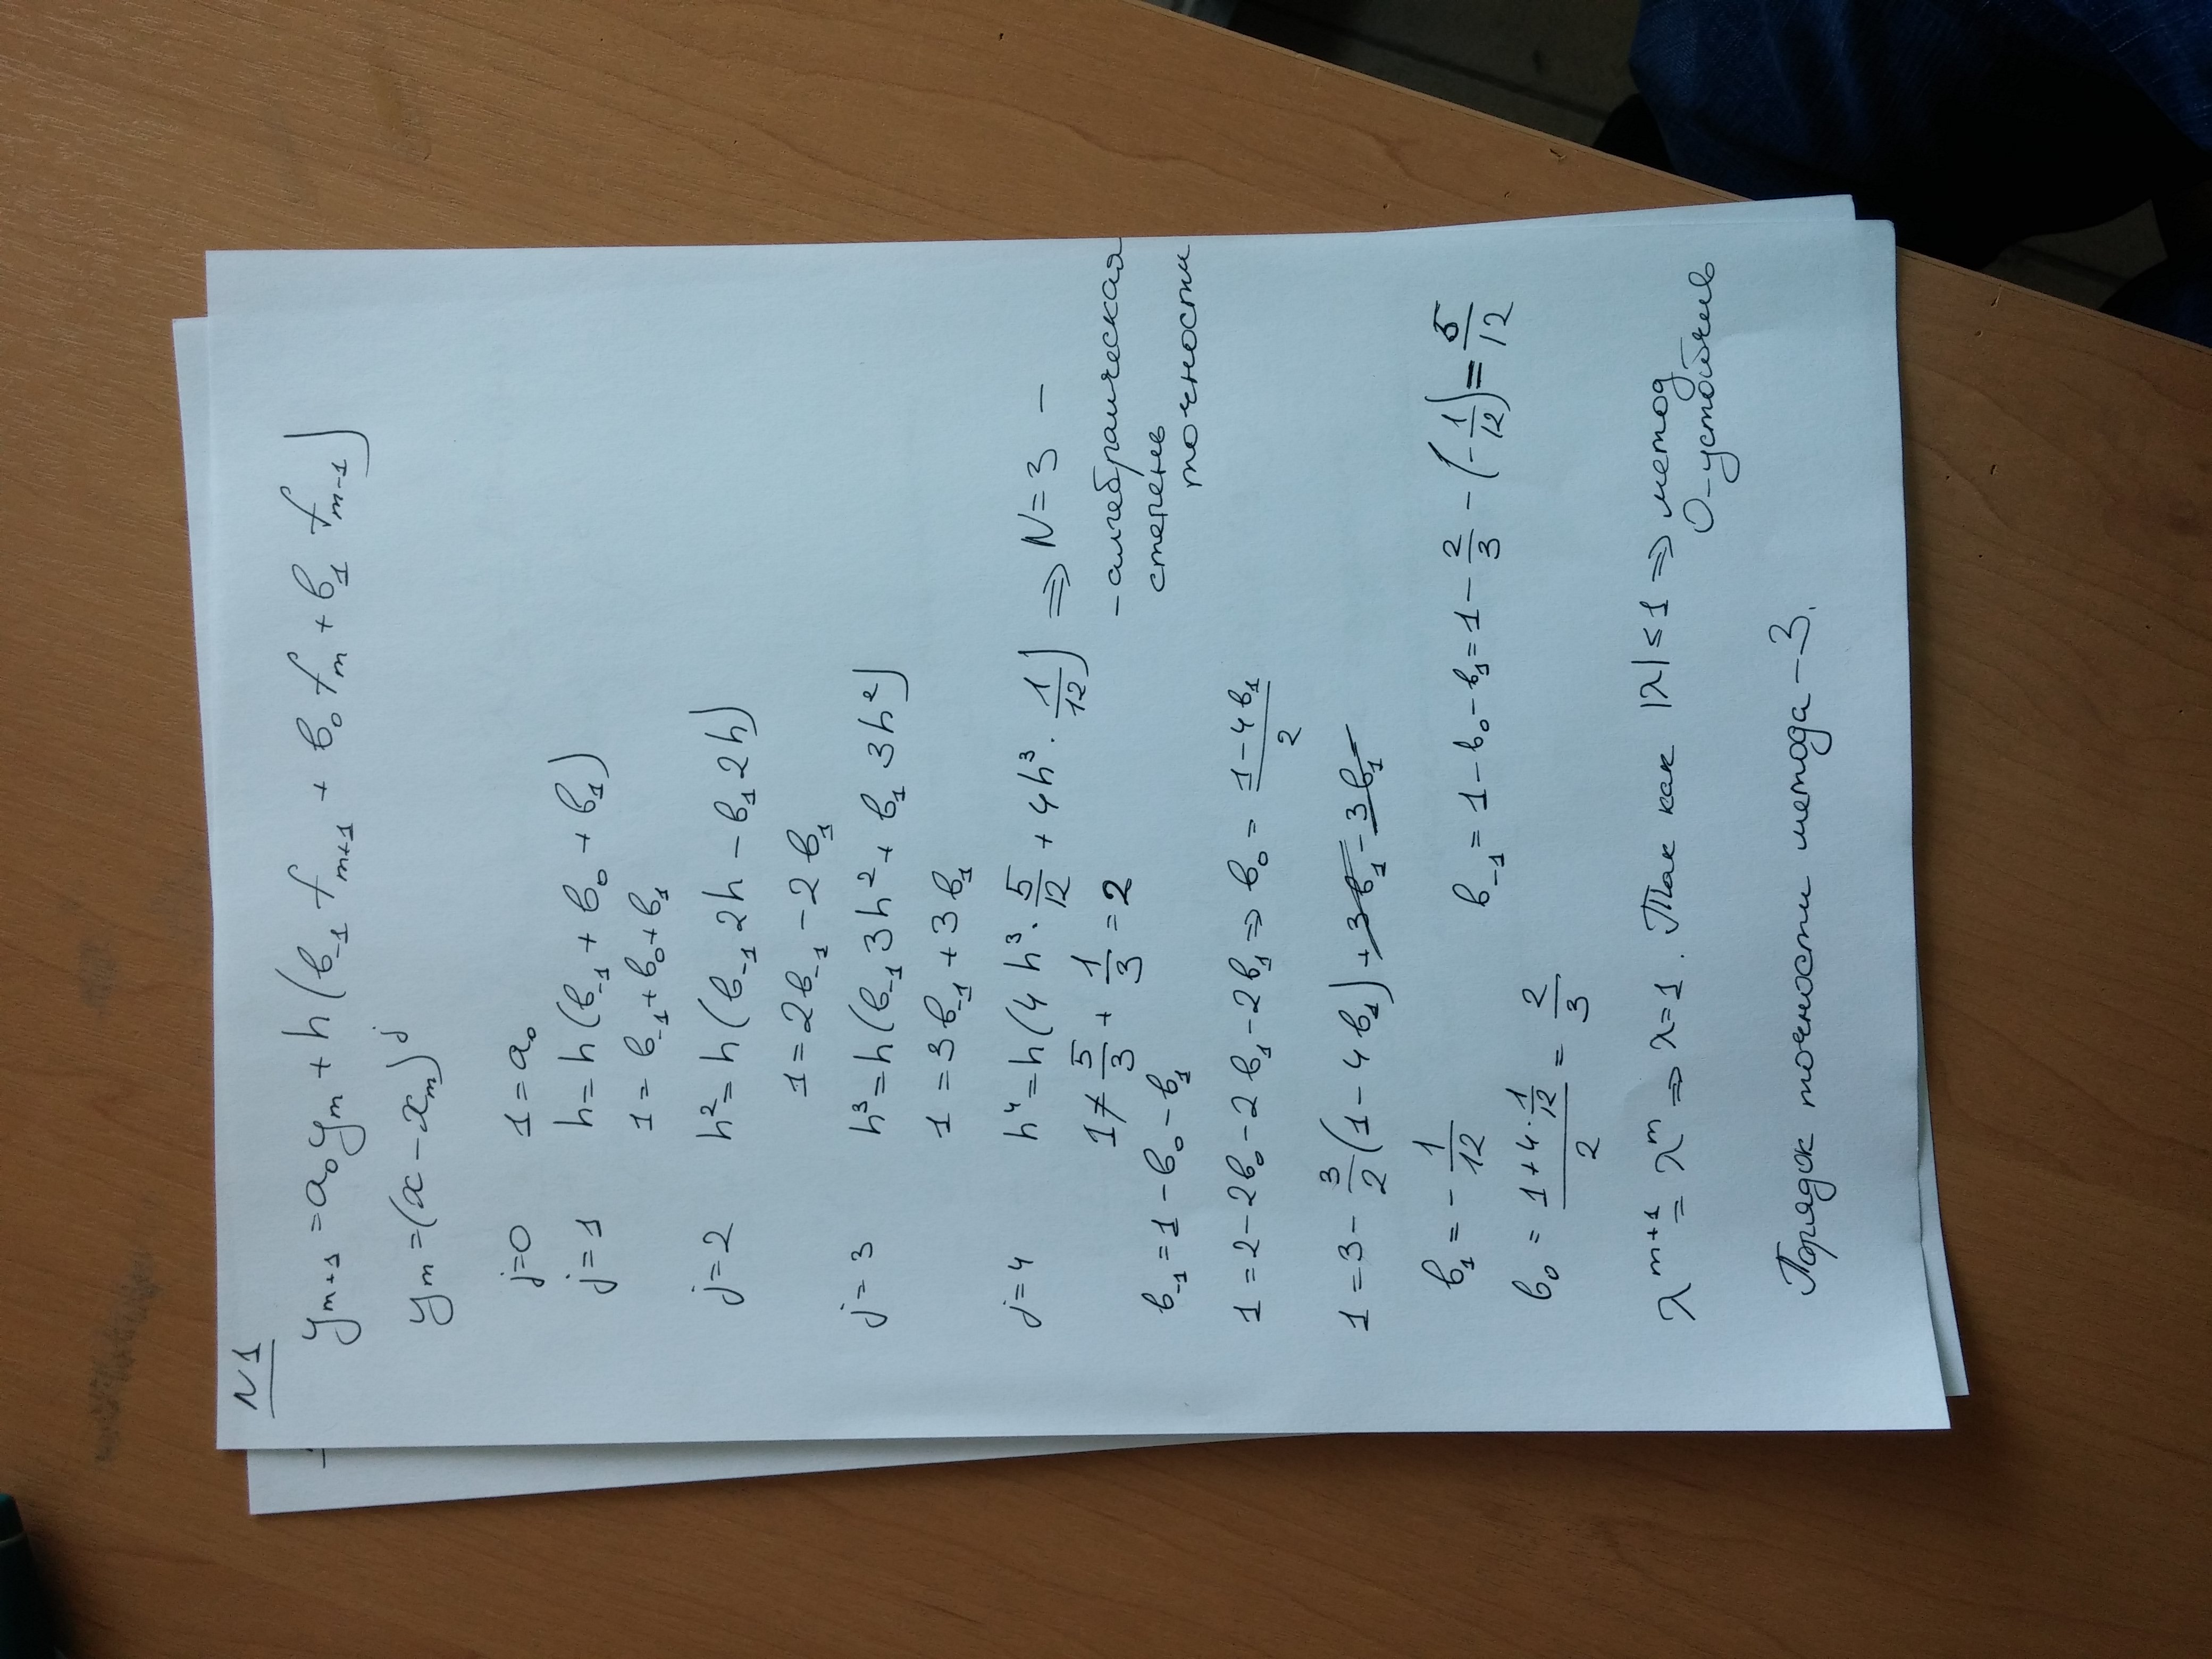 N1
y_{m+1} = a_0 y_m + h(b_{-1} f_{m+1} + b_0 f_m + b_1 f_{m-1})
y_m = (x - x_m)^j
j=0 1 = a_0
j=1 h = h(b_{-1} + b_0 + b_1)
1 = b_{-1} + b_0 + b_1
j=2 h^2 = h(b_{-1} 2h - b_1 2h)
1 = 2b_{-1} - 2b_1
j=3 h^3 = h(b_{-1} 3h^2 + b_1 3h^2)
1 = 3b_{-1} + 3b_1
j=4 h^4 = h(4h^3 · 5/12 + 4h^3 · 1/12) ⇒ N=3 –
1 ≠ 5/3 + 1/3 = 2
– алгебраическая
степень
точности
b_{-1} = 1 - b_0 - b_1
1 = 2 - 2b_0 - 2b_1 - 2b_1 ⇒ b_0 = (1 - 4b_1)/2
1 = 3 - 3/2 (1 - 4b_1) + 3b_1 - 3b_1
b_1 = -1/12
b_{-1} = 1 - b_0 - b_1 = 1 - 2/3 - (-1/12) = 5/12
b_0 = (1 + 4 · 1/12)/2 = 2/3
λ^{m+1} = λ^m ⇒ λ=1. Так как |λ| ≤ 1 ⇒ метод
0-устойчив
Порядок точности метода – 3.